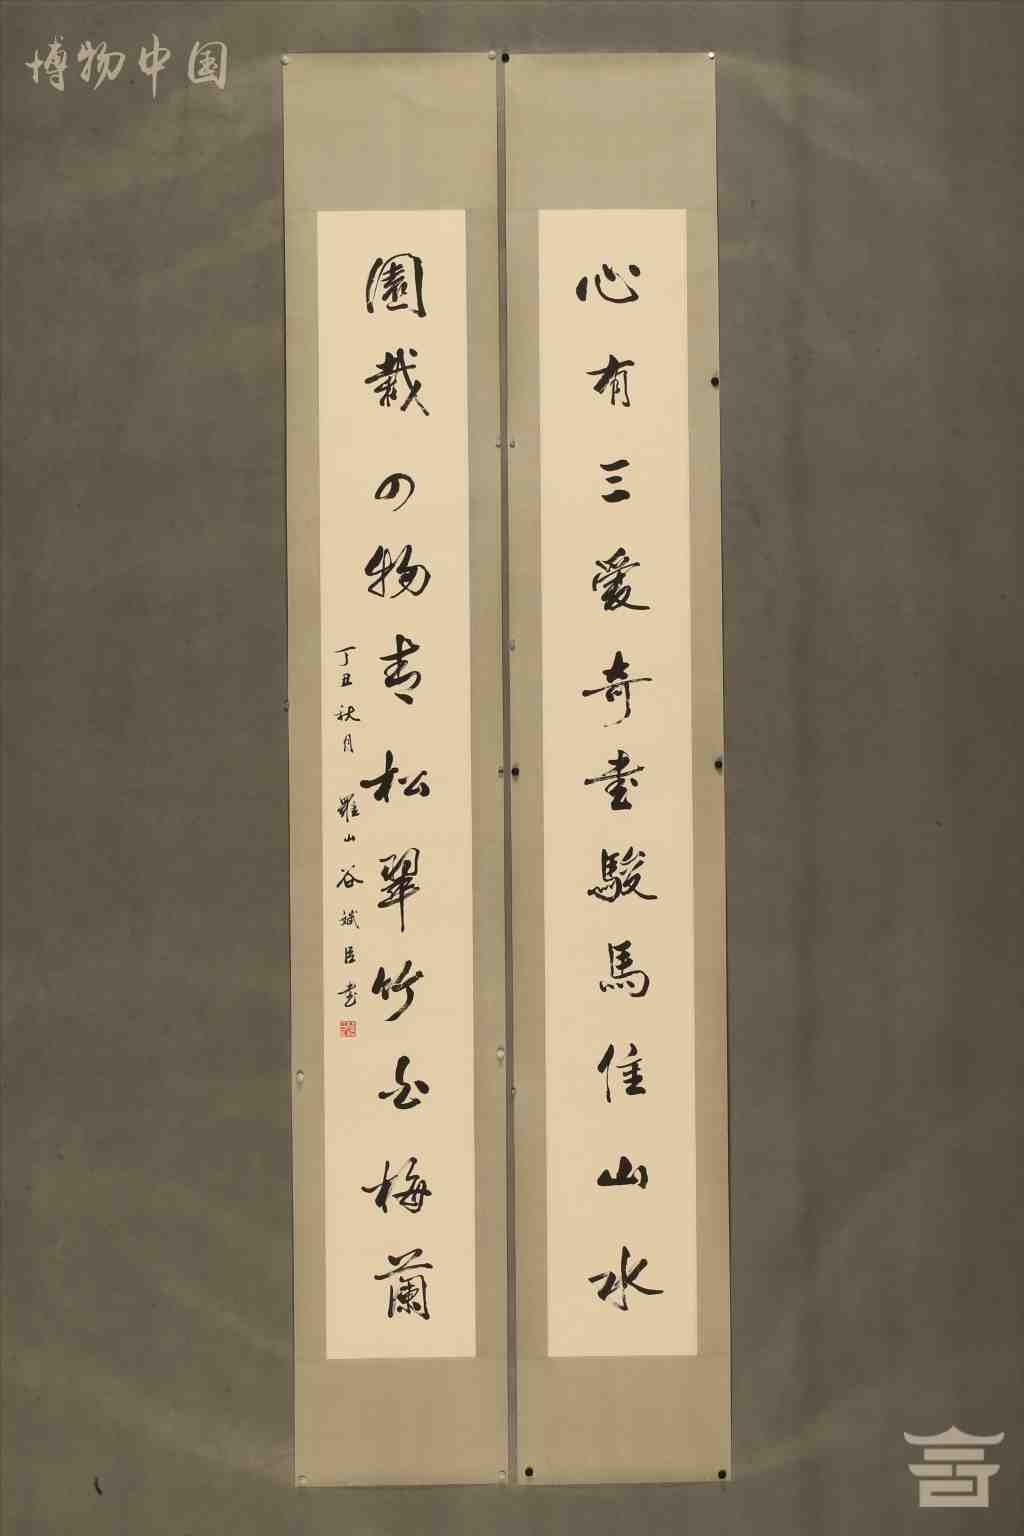 博物中国
心有三爱奇書駿馬佳山水
園栽四物青松翠竹白梅蘭
丁丑秋月 羅山谷斌臣書